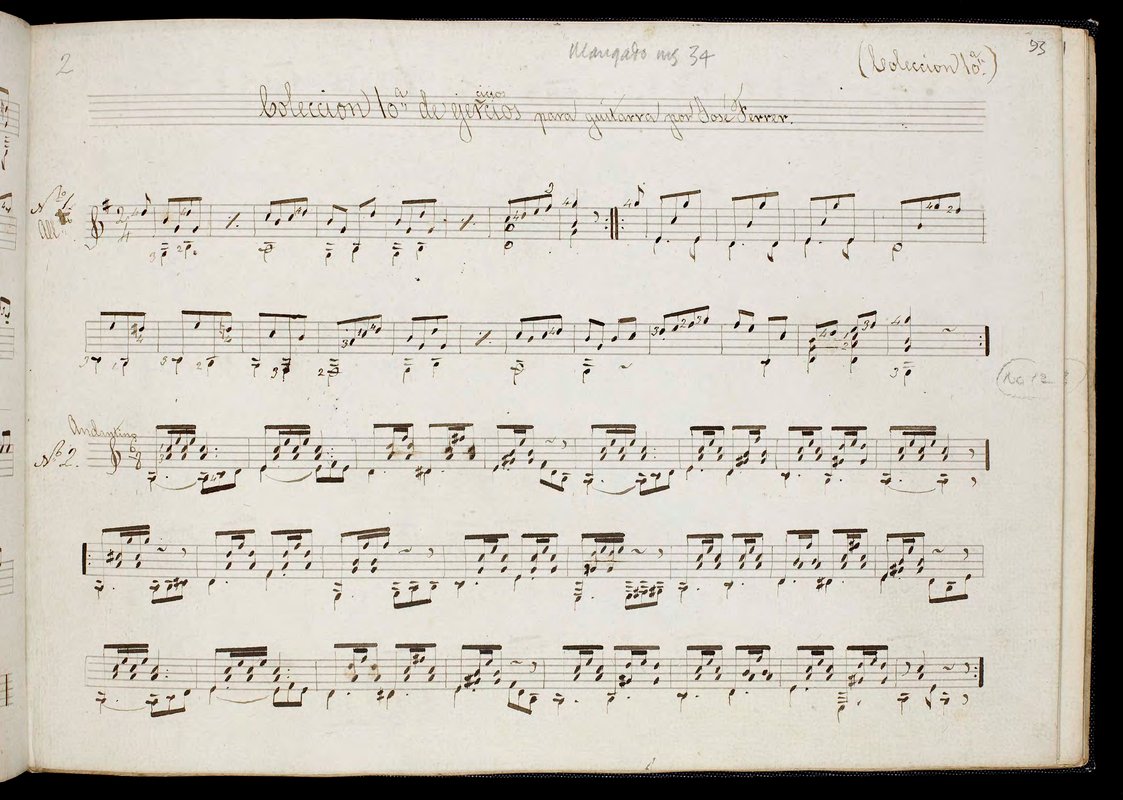 2
Mangado ms 34
93
(Coleccion 10ª.)
cicios
Coleccion 10ª de ejercios para guitarra por José Ferrer.
Nº 1.
All.to
2
4
No 12
Andantino
Nº 2.
6
8